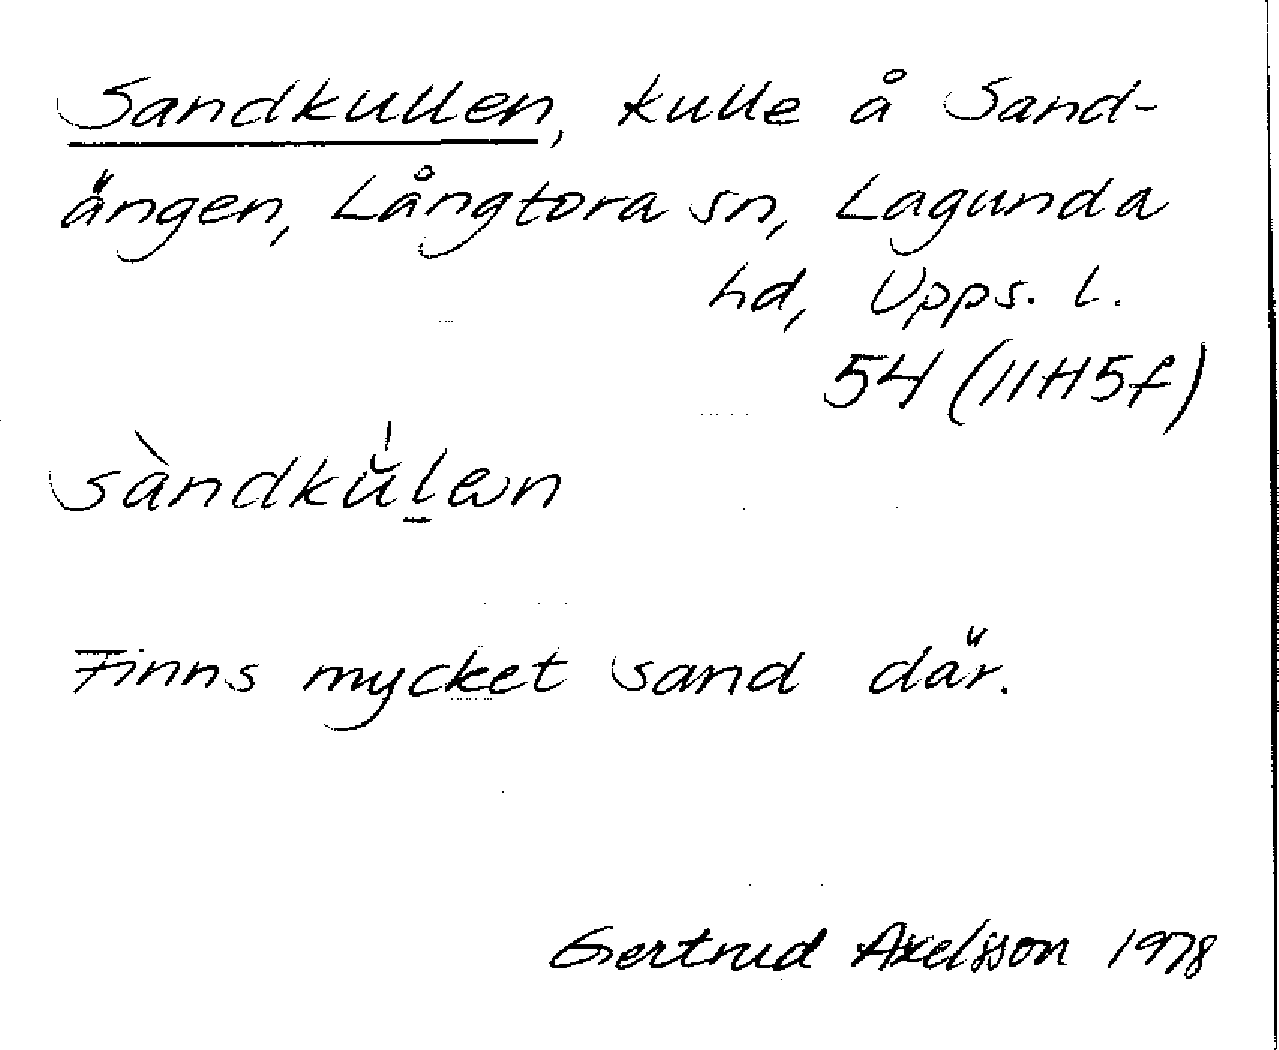 Sandkullen, kulle å Sand-
ängen, Långtora sn, Lagunda
hd, Upps. l.
54 (11H5f)
sàndkŭ́l̲ən
Finns mycket sand där.
Gertrud Axelsson 1978